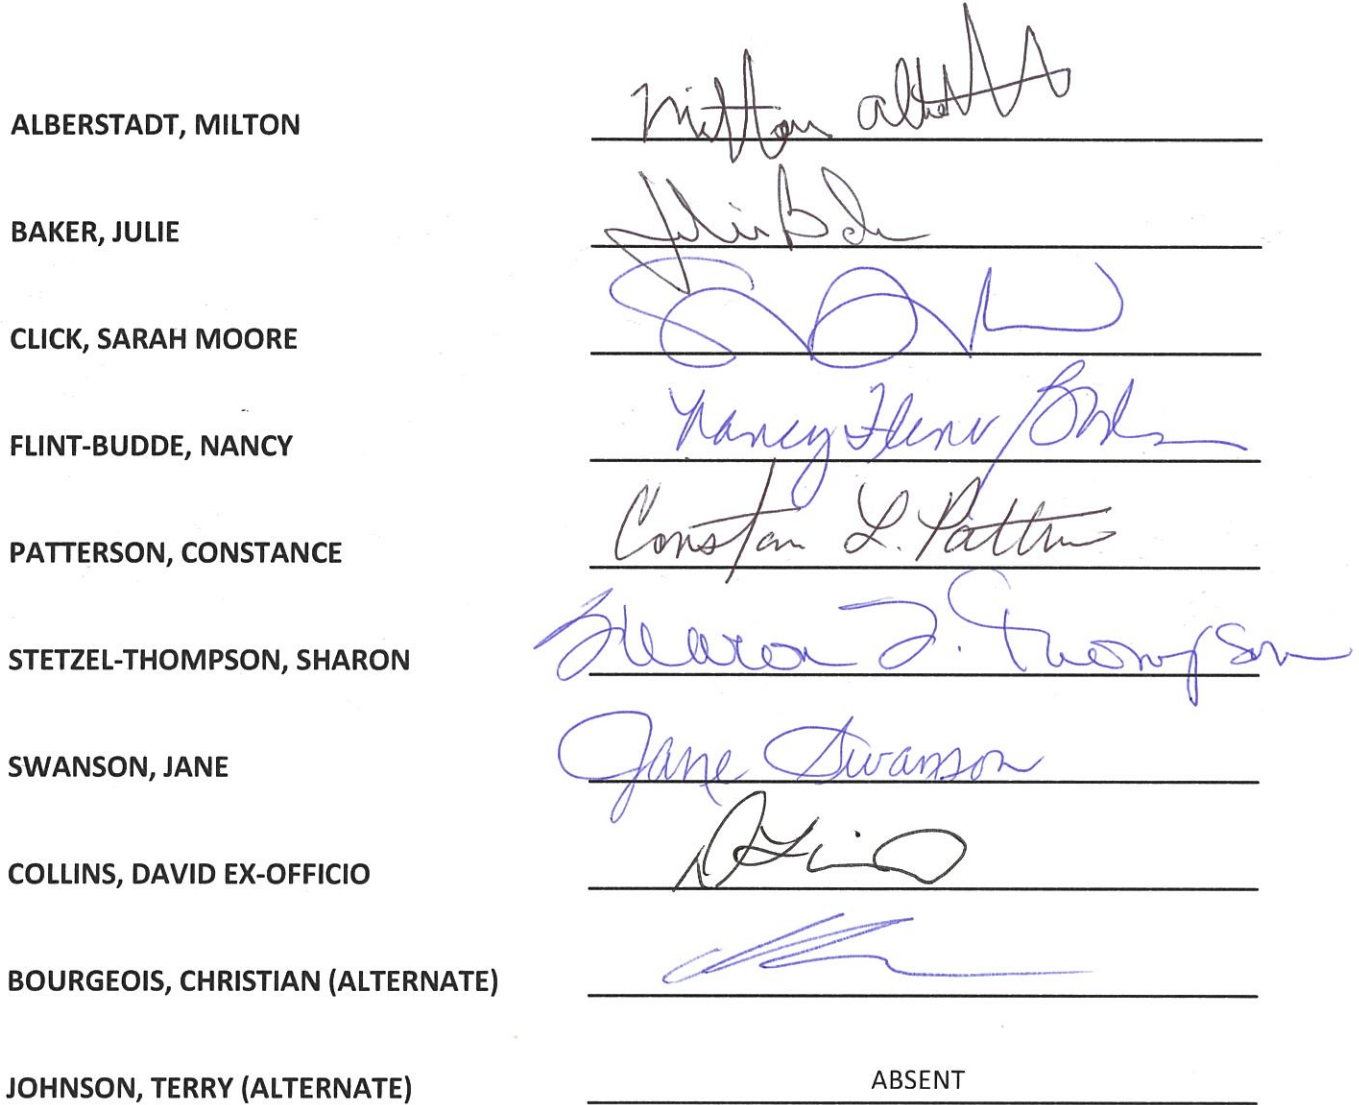 ALBERSTADT, MILTON Milton
BAKER, JULIE Julie
CLICK, SARAH MOORE
FLINT-BUDDE, NANCY Nancy
PATTERSON, CONSTANCE L.
STETZEL-THOMPSON, SHARON Sharon Thompson
SWANSON, JANE Jane Swanson
COLLINS, DAVID EX-OFFICIO
BOURGEOIS, CHRISTIAN (ALTERNATE)
JOHNSON, TERRY (ALTERNATE) ABSENT